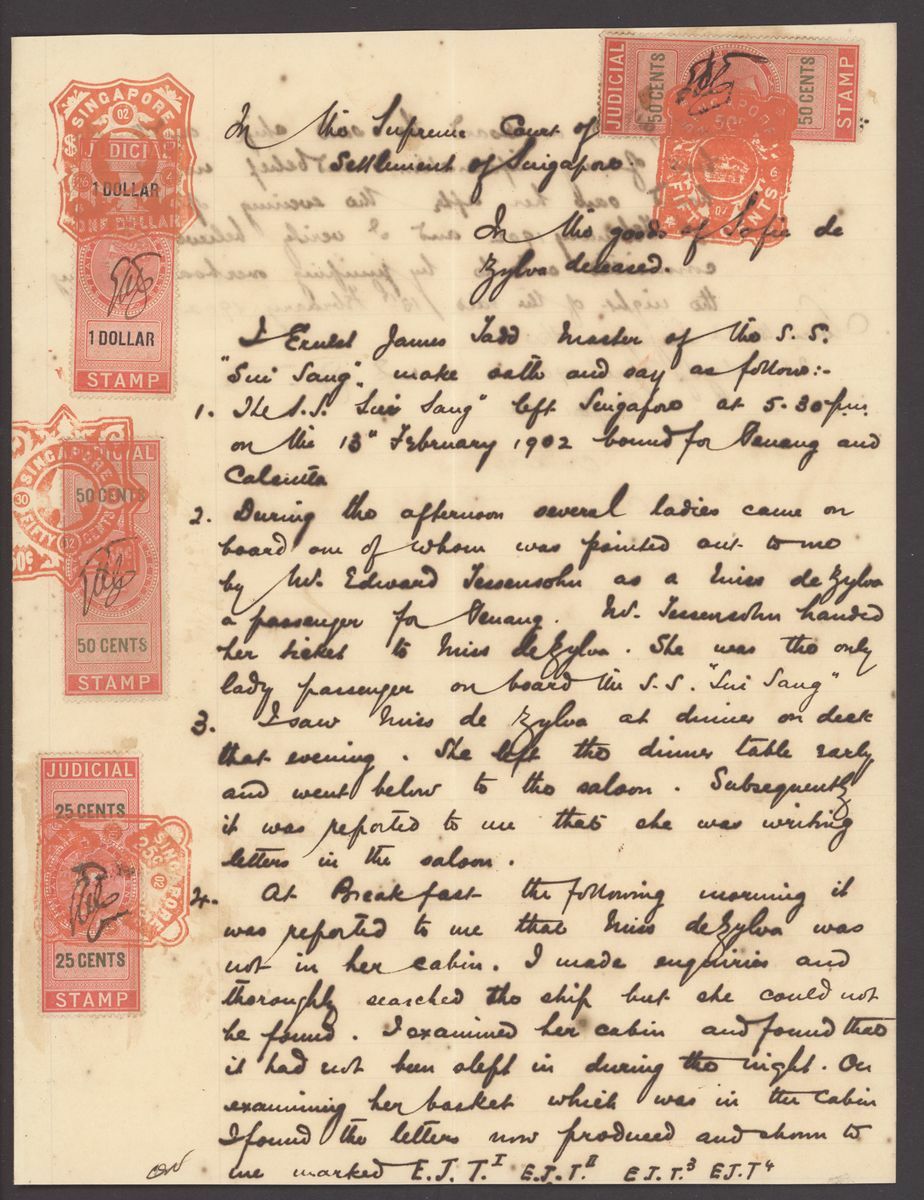 In the Supreme Court of
Settlement of Singapore
In the goods of Sofie de
Zylva deceased.
I Ernest James Tadd Master of the S.S.
"Sui Sang", make oath and say as follows:-
1. The S.S. Sui Sang" left Singapore at 5.30 p.m.
on the 13" February 1902 bound for Penang and
Calcutta
2. During the afternoon several ladies came on
board one of whom was pointed out to me
by Mr. Edward Tessensohn as a Miss de Zylva
a passenger for Penang. Mr. Tessensohn handed
her ticket to Miss de Zylva. She was the only
lady passenger on board the S.S. "Sui Sang"
3. I saw Miss de Zylva at dinner on deck
that evening. She left the dinner table early
and went below to the saloon. Subsequently
it was reported to me that she was writing
letters in the saloon.
4. At Breakfast the following morning it
was reported to me that Miss de Zylva was
not in her cabin. I made enquiries and
thoroughly searched the ship but she could not
be found. I examined her cabin and found that
it had not been slept in during the night. On
examining her basket which was in the cabin
I found the letters now produced and shown to
me marked E.J.T.I E.J.T.II E.J.T.3 E.J.T4
JUDICIAL
50 CENTS
50 CENTS
STAMP
SINGAPORE
02
JUDICI
1 DOLLAR
ONE DOLLAR
1 DOLLAR
STAMP
JUDICIAL
SINGAPORE
50 CENTS
30
02
FIFTY CENTS
50 CENTS
STAMP
JUDICIAL
25 CENTS
SINGAPORE
25c
02
25 CENTS
STAMP